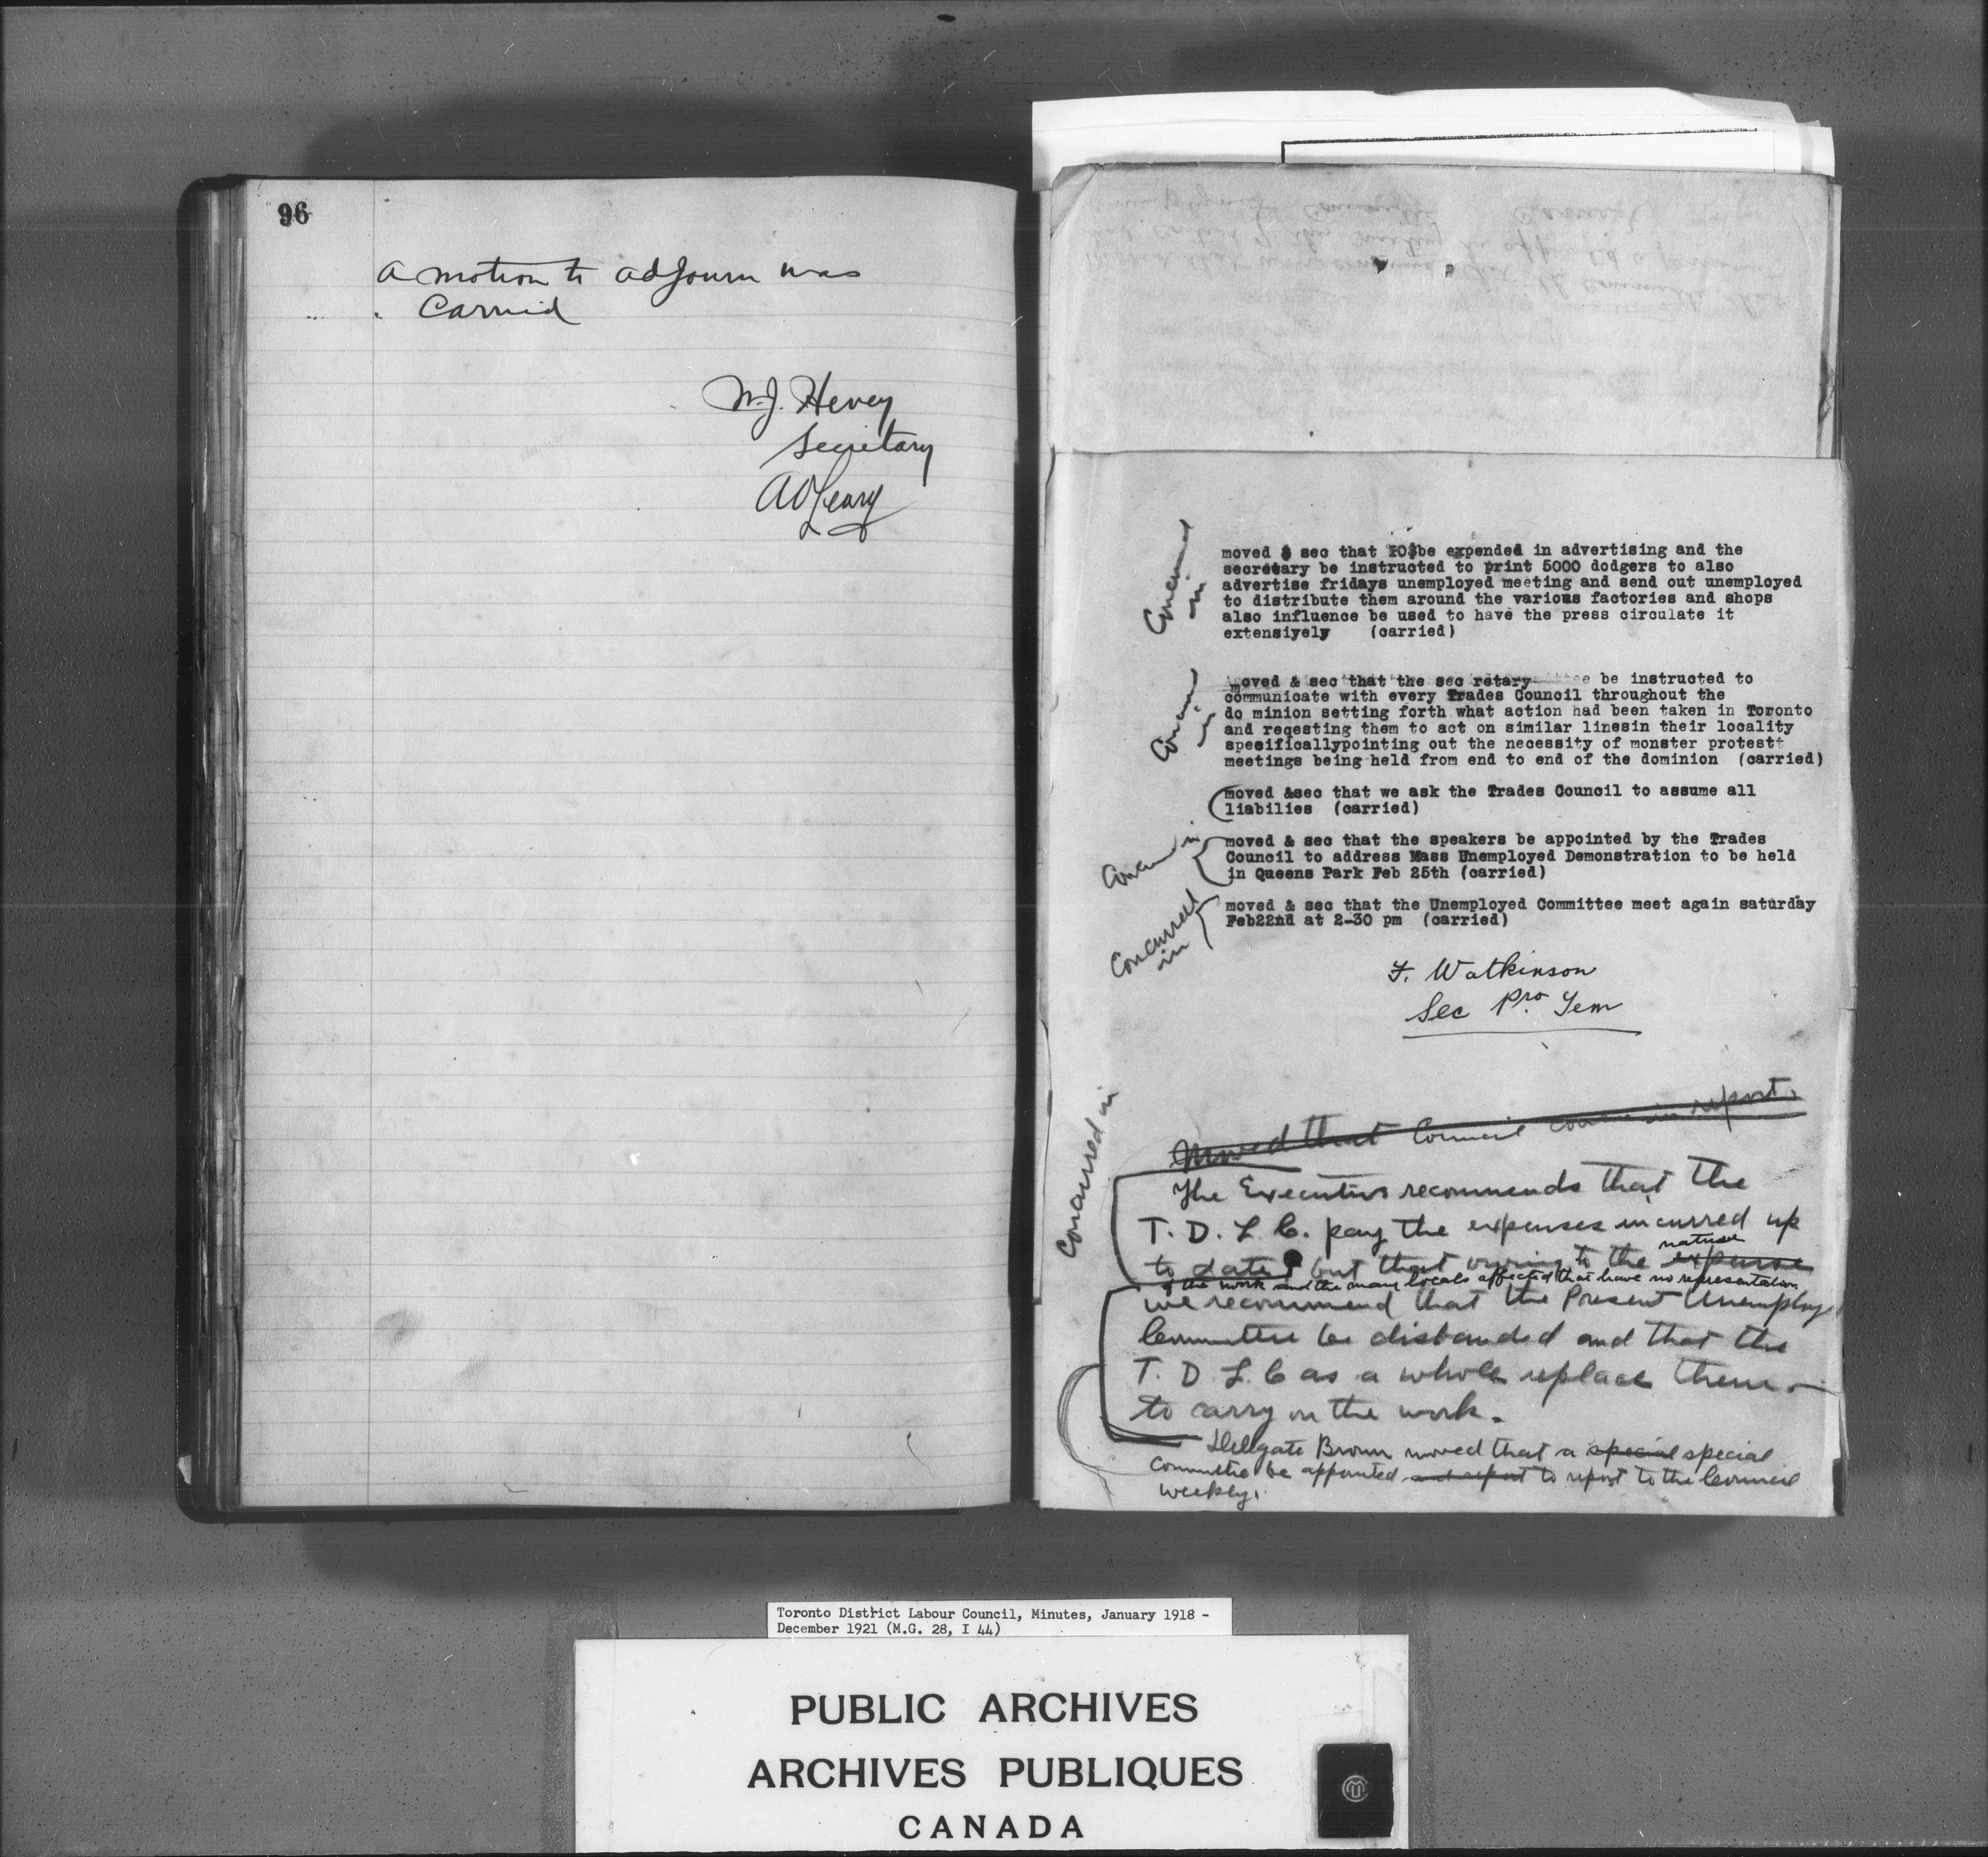 96
A motion to adjourn was
Carried
W.J. Hevey
Secretary
A O'Leary
moved & sec that 10$be expended in advertising and the
secretary be instructed to print 5000 dodgers to also
advertise fridays unemployed meeting and send out unemployed
to distribute them around the various factories and shops
also influence be used to have the press circulate it
extensiyely (carried)
Concurred
in
moved & sec that the sec retary be instructed to
communicate with every Trades Council throughout the
do minion setting forth what action had been taken in Toronto
and reqesting them to act on similar linesin their locality
speeificallypointing out the necessity of monster protestt
meetings being held from end to end of the dominion (carried)
Concurred
in
moved &sec that we ask the Trades Council to assume all
liabilies (carried)
moved & sec that the speakers be appointed by the Trades
Council to address Mass Unemployed Demonstration to be held
in Queens Park Feb 25th (carried)
Concurred in
moved & sec that the Unemployed Committee meet again saturday
Feb22nd at 2-30 pm (carried)
Concurred
in
F. Watkinson
Sec Pro. Tem
Moved that Council concur in report.
Concurred in
The Executive recommends that the
T. D. L. C. pay the expenses incurred up
to date but that owing to the expense nature
of the work and the many locals affected that have no representation
we recommend that the Present Unemploye
Committee be disbanded and that the
T. D. L. C as a whole replace them
to carry on the work.
Delegate Brown moved that a special special
Committee be appointed and report to report to the Council
weekly.
Toronto District Labour Council, Minutes, January 1918 -
December 1921 (M.G. 28, I 44)
PUBLIC ARCHIVES
ARCHIVES PUBLIQUES
CANADA